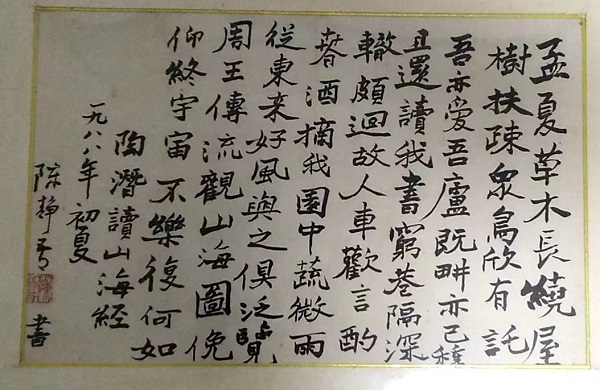 孟夏草木長繞屋
樹扶疎眾鳥欣有託
吾亦愛吾廬既畊亦已種
且還讀我書窮巷隔深
轍頗迴故人車歡言酌
春酒摘我園中蔬微雨
從東来好風與之俱泛覽
周王傳流觀山海圖俛
仰終宇宙不樂復何如
陶潛讀山海經
一九八八年初夏
陳静書